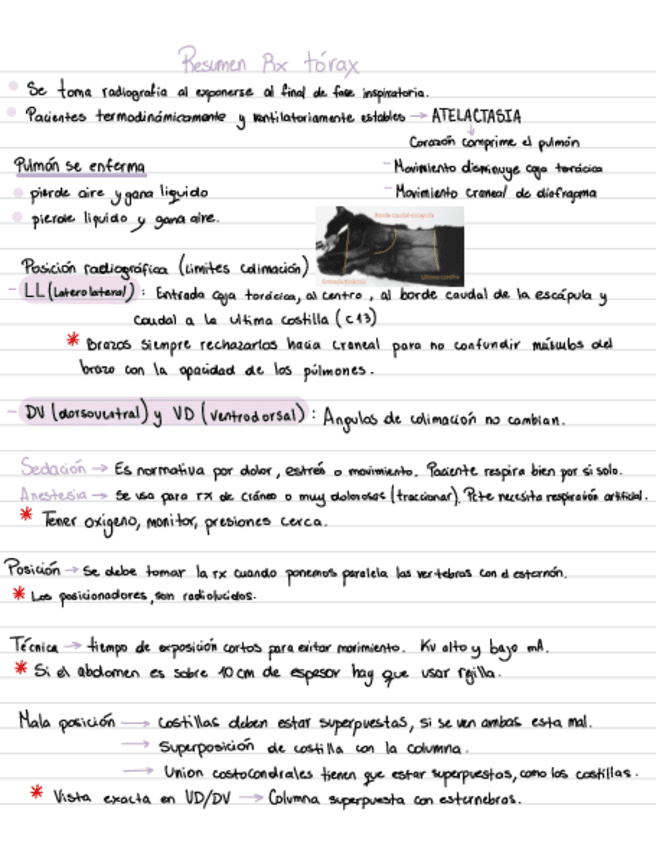 Resumen Rx tórax
Se toma radiografia al exponerse al final de fase inspiratoria.
Pacientes termodinámicamente y ventilatoriamente estables → ATELACTASIA
Corazón comprime el pulmón
Pulmón se enferma
- Movimiento disminuye caja torácica
pierde aire y gana liquido
- Movimiento craneal de diafragma
pierde liquido y gana aire.
Borde caudal escápula
Posición radiográfica (Limites colimación)
- LL (Laterolateral) : Entrada caja torácica, al centro, al borde caudal de la escápula y
caudal a la ultima costilla (c13)
* Brazos siempre rechazarlos hacia craneal para no confundir músculos del
brazo con la opacidad de los púlmones.
- DV (dorsoventral) y VD (ventrodorsal) : Angulos de colimación no cambian.
Sedación → Es normativa por dolor, estrés o movimiento. Paciente respira bien por si solo.
Anestesia → Se usa para rx de cráneo o muy dolorosas (traccionar). Pcte necesita respiración artificial.
* Tener oxigeno, monitor, presiones cerca.
Posición → Se debe tomar la rx cuando ponemos paralela las vertebras con el esternón.
* Los posicionadores, son radiolucidos.
Técnica → tiempo de exposición cortos para evitar movimiento. Kv alto y bajo mA.
* Si el abdomen es sobre 10 cm de espesor hay que usar rejilla.
Mala posición → Costillas deben estar superpuestas, si se ven ambas esta mal.
→ Superposición de costilla con la columna.
→ Union costocondrales tienen que estar superpuestas, como las costillas.
* Vista exacta en VD/DV → Columna superpuesta con esternebras.